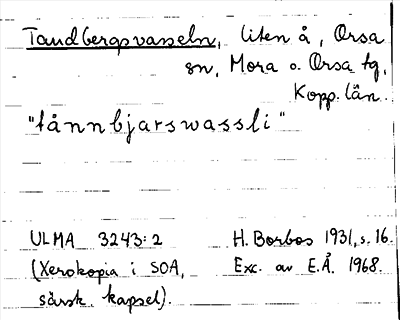 Tandbergsvasseln, liten å, Orsa
sn, Mora o. Orsa tg,
Kopp. län.
"tånnbjarswassli"
ULMA 3243:2 H. Borbos 1931, s. 16.
(Xerokopia i SOA, Exc. av E.Å. 1968.
särsk. kapsel).